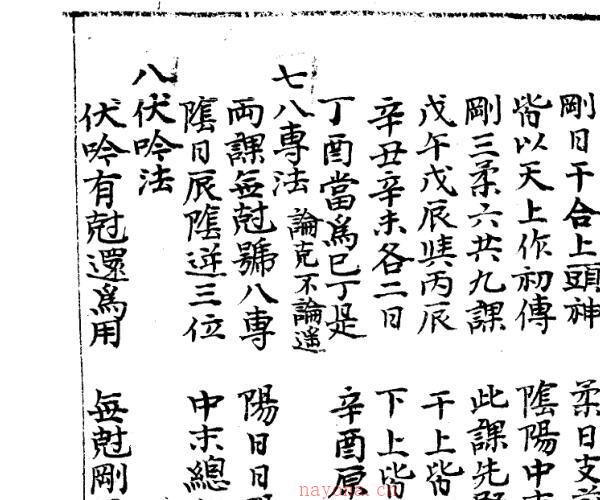 剛日干合上頭神 柔日支前
皆以天上作初傳 陰陽中
剛三柔六共九課 此課先
戊午戊辰與丙辰 干上皆
辛丑辛未各二日 下上皆
丁酉當為巳丁是 辛酉原
七八專法 論克不論遙
兩課無尅號八專 陽日日
陰日辰陰逆三位 中末總
八伏吟法
伏吟有尅還為用 無尅剛
nayona.cn